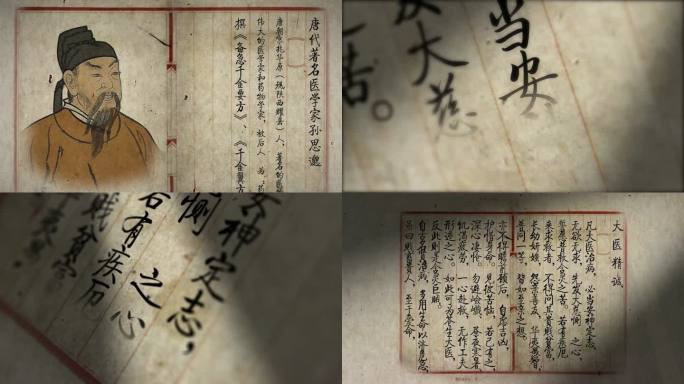 唐代著名医学家孙思邈
唐朝京兆华原（现陕西耀县）人，著名的
伟大的医学家和药物学家，被后人
撰《备急千金要方》、《千金翼方
当安
发大慈
苦。
安神定志，
恻之心
若有疾厄
贱贫富
大医精诚
凡大医治病，必当安神定志，
无欲无求，先发大慈恻之心，
誓愿普救含灵之苦。若有疾厄
来求救者，不得问其贵贱贫富，
长幼妍媸，怨亲善友，华夷愚智，
普同一等，皆如至亲之想。
亦不得瞻前顾后，自虑吉凶，
护惜身命。见彼苦恼，若己有之，
深心凄怆。勿避险巇、昼夜寒暑、
饥渴疲劳，一心赴救，无作工夫
形迹之心。如此可为苍生大医，
反此则是含灵巨贼。
自古名贤治病，多用生命以济危急，
虽曰贱畜贵人，至于爱命，